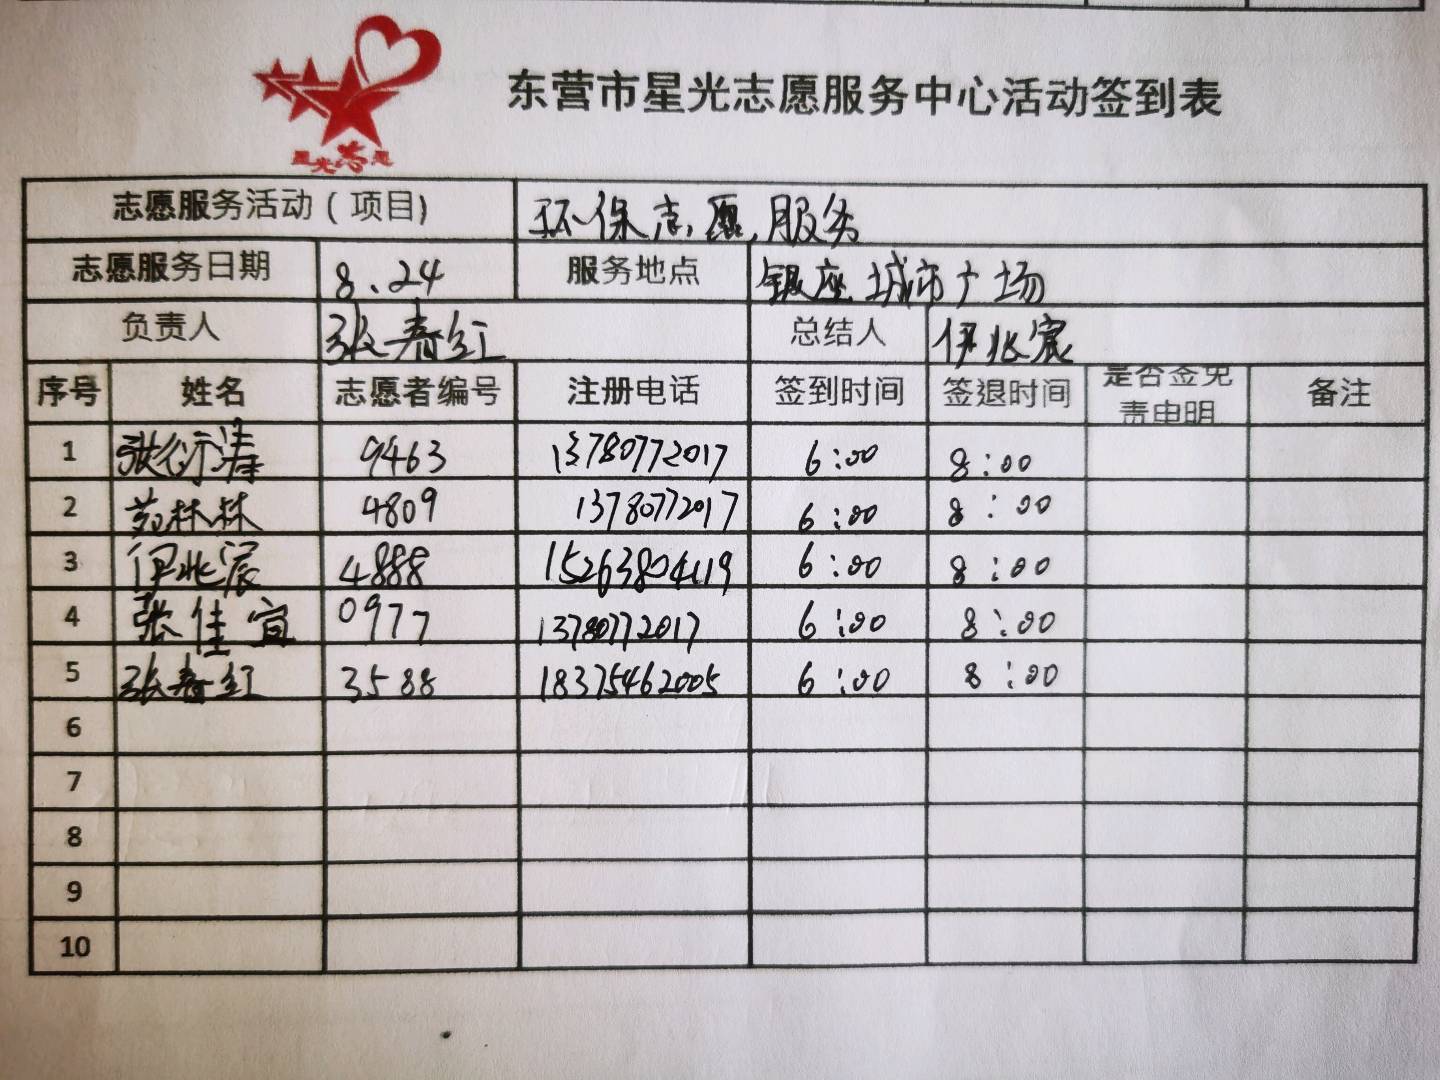 星光志愿
东营市星光志愿服务中心活动签到表
志愿服务活动（项目) 环保志愿服务
志愿服务日期 8.24 服务地点 银座城市广场
负责人 张春红 总结人 伊兆宸
序号 姓名 志愿者编号 注册电话 签到时间 签退时间 是否签免责申明 备注
1 张衍涛 9463 13780772017 6:00 8:00
2 苑林林 4809 13780772017 6:00 8:00
3 伊兆宸 4888 15263804119 6:00 8:00
4 张佳宜 0977 13780772017 6:00 8:00
5 张春红 3588 18375462005 6:00 8:00
6
7
8
9
10